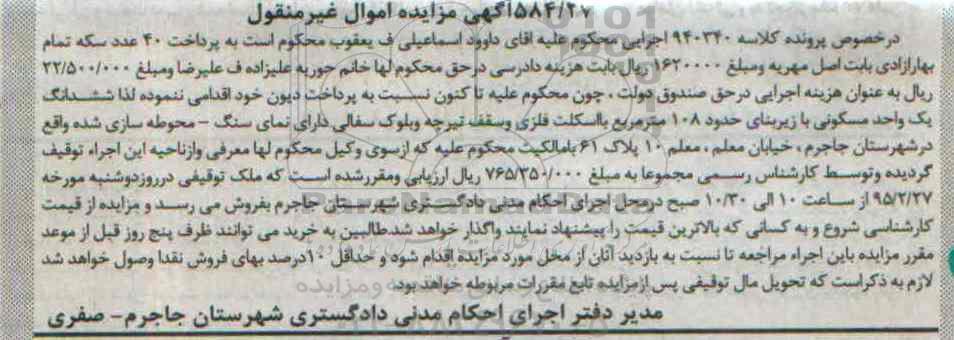 ۵۸۴/۲۷آگهی مزایده اموال غیرمنقول
درخصوص پرونده کلاسه ۹۴۰۳۴۰ اجرایی محکوم علیه اقای داوود اسماعیلی ف یعقوب محکوم است به پرداخت ۴۰ عدد سکه تمام
بهارازادی بابت اصل مهریه ومبلغ ۱۶۲۰۰۰۰ ریال بابت هزینه دادرسی درحق محکوم لها خانم حوریه علیزاده ف علیرضا ومبلغ ۲۲/۵۰۰/۰۰۰
ریال به عنوان هزینه اجرایی درحق صندوق دولت ، چون محکوم علیه تا کنون نسبت به پرداخت دیون خود اقدامی ننموده لذا ششدانگ
یک واحد مسکونی با زیربنای حدود ۱۰۸ مترمربع بااسکلت فلزی وسقف تیرچه وبلوک سفالی دارای نمای سنگ - محوطه سازی شده واقع
درشهرستان جاجرم ، خیابان معلم ، معلم ۱۰ پلاک ۶۱ بامالکیت محکوم علیه که ازسوی وکیل محکوم لها معرفی وازناحیه این اجراء توقیف
گردیده وتوسط کارشناس رسمی مجموعا به مبلغ ۷۶۵/۳۵۰/۰۰۰ ریال ارزیابی ومقررشده است که ملک توقیفی درروزدوشنبه مورخه
۹۵/۲/۲۷ از ساعت ۱۰ الی ۱۰/۳۰ صبح درمحل اجرای احکام مدنی دادگستری شهرستان جاجرم بفروش می رسد و مزایده از قیمت
کارشناسی شروع و به کسانی که بالاترین قیمت را پیشنهاد نمایند واگذار خواهد شد.طالبین به خرید می توانند ظرف پنج روز قبل از موعد
مقرر مزایده باین اجراء مراجعه تا نسبت به بازدید آنان از محل مورد مزایده اقدام شود و حداقل ۱۰درصد بهای فروش نقدا وصول خواهد شد
لازم به ذکراست که تحویل مال توقیفی پس ازمزایده تابع مقررات مربوطه خواهد بود.
مدیر دفتر اجرای احکام مدنی دادگستری شهرستان جاجرم- صفری